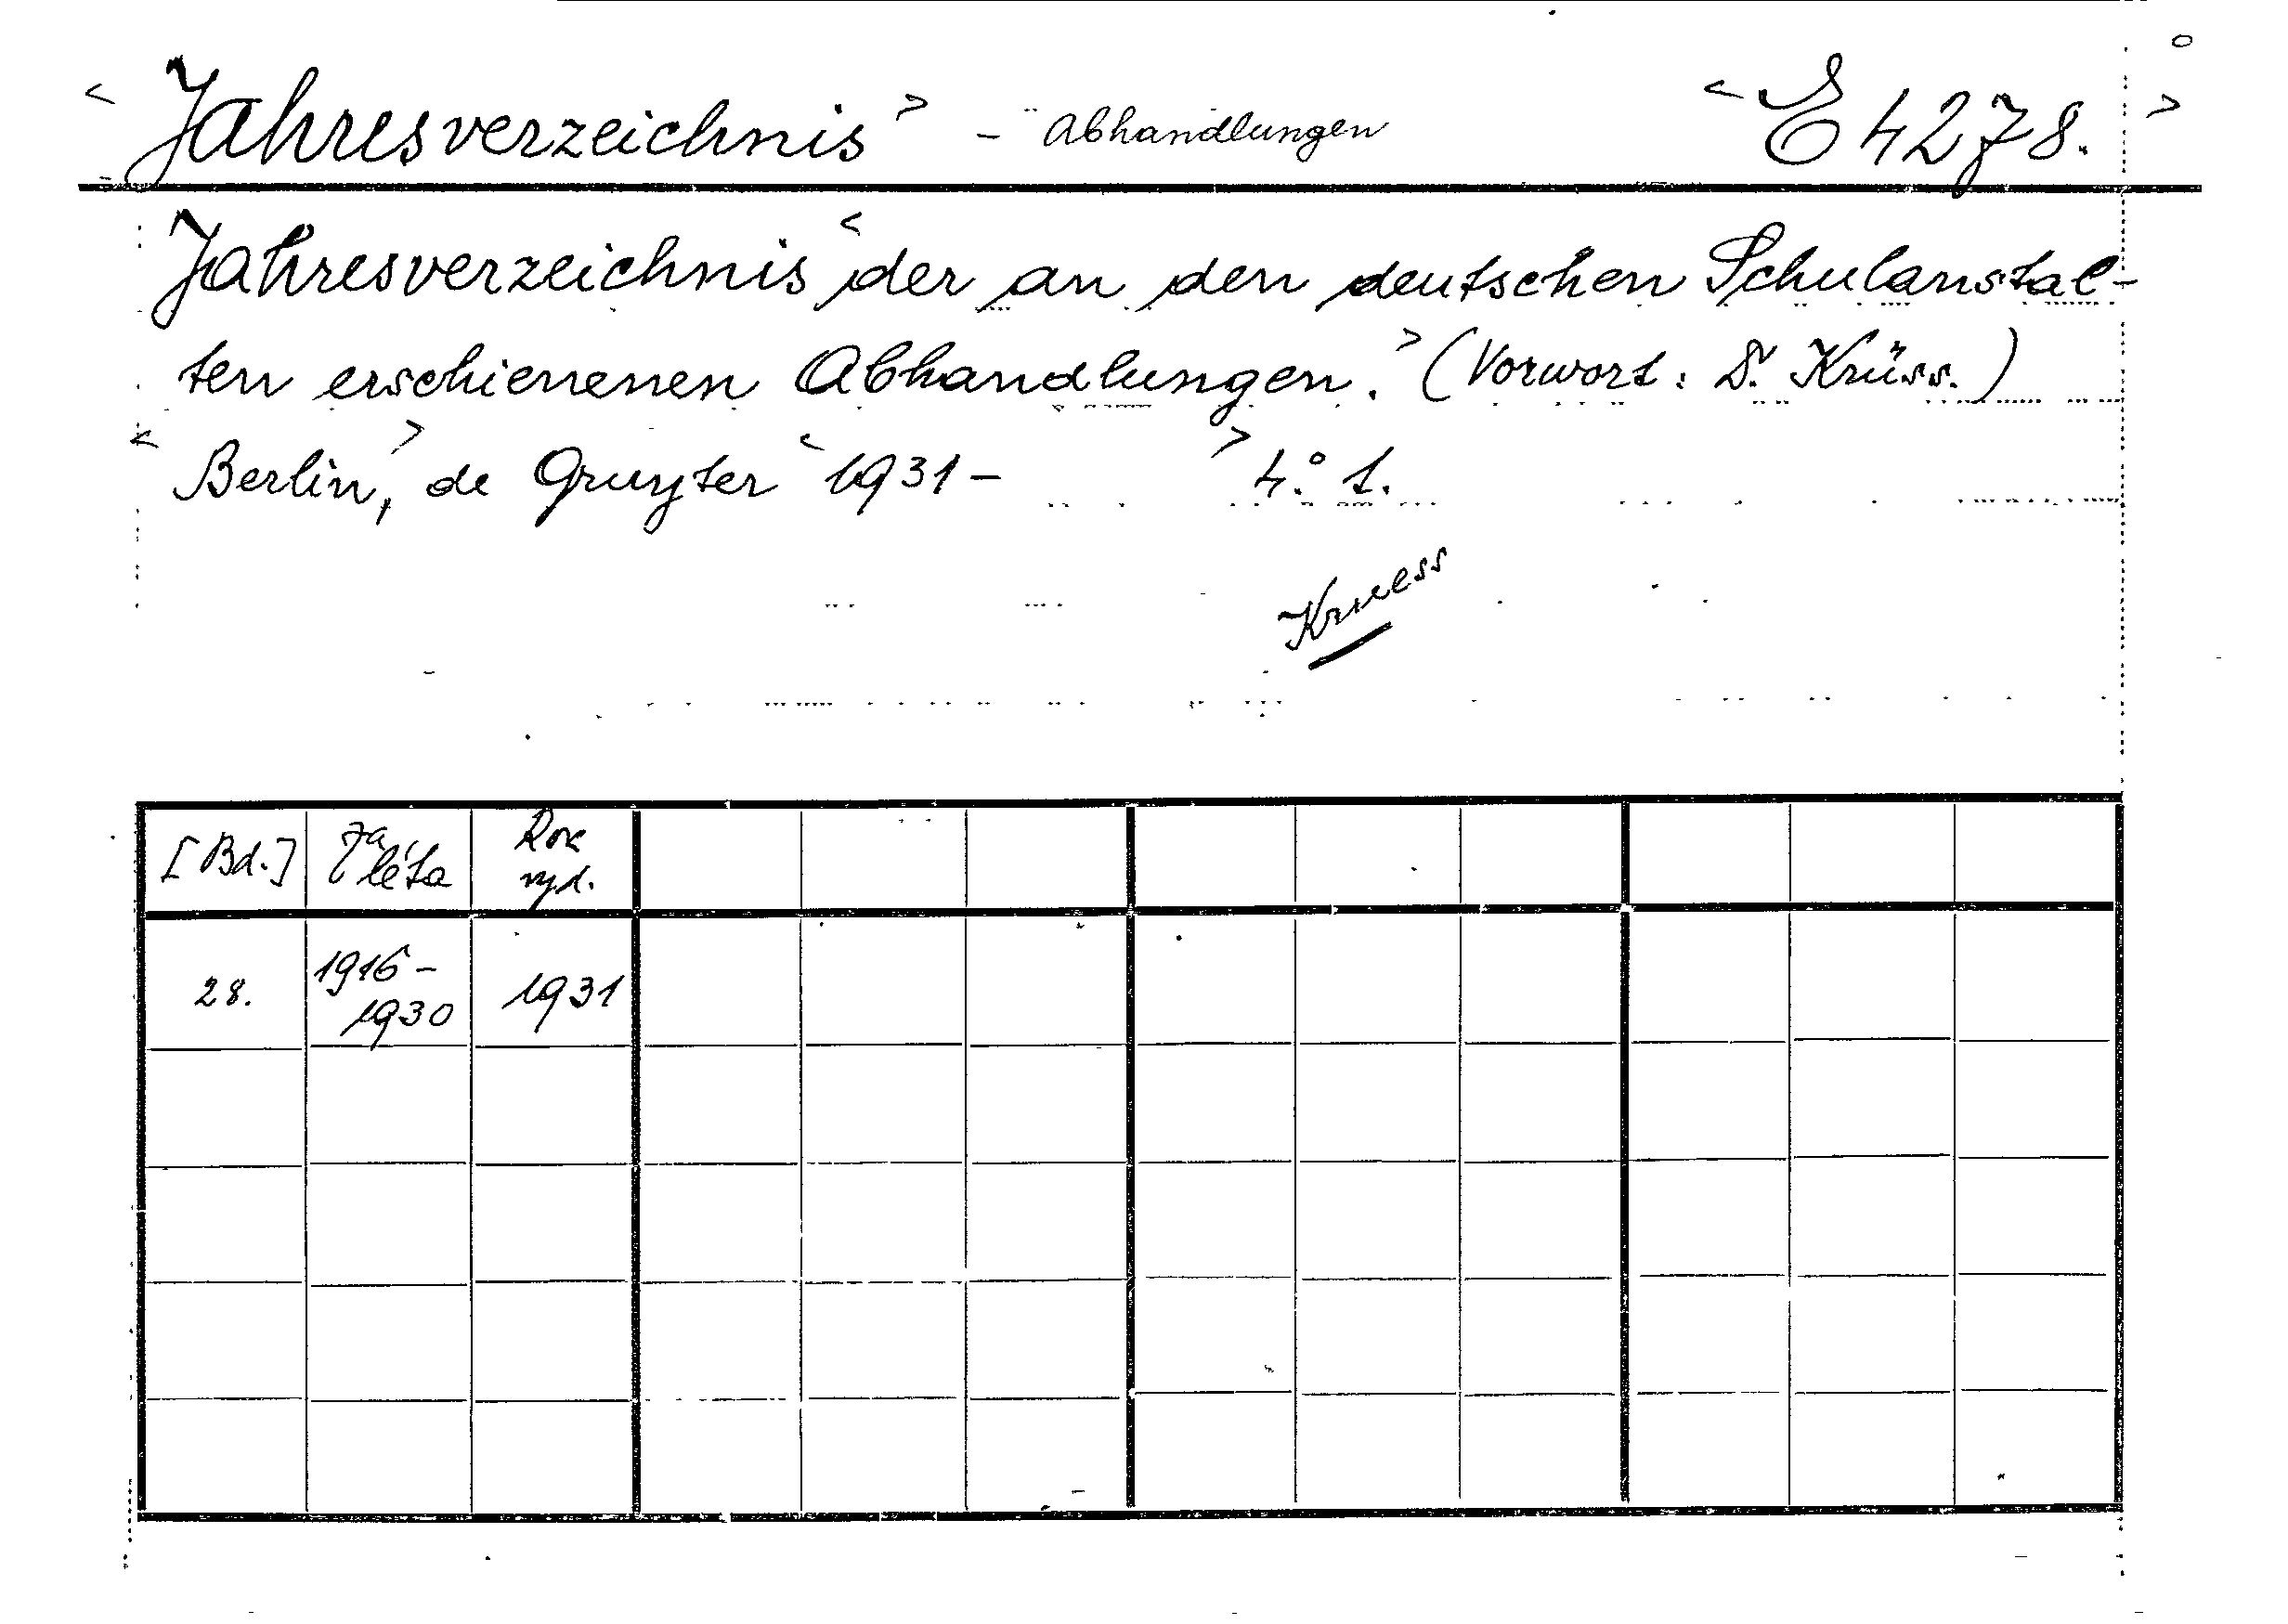 < Jahresverzeichnis > - Abhandlungen < E 4278. >
Jahresverzeichnis < der an den deutschen Schulanstal-
ten erschienenen Abhandlungen. > (Vorwort: D. Krüss.)
< Berlin, > de Gruyter < 1931 - > 4.° 1.
Kruess
[Bd.] Za léta Rok vyd.
28. 1916 - 1930 1931